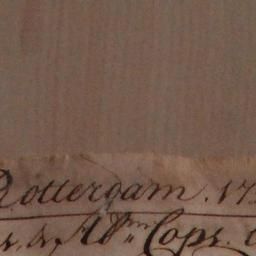 Rotterdam. 17
Abm Cops.